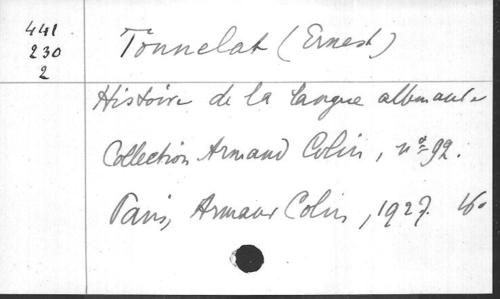 441
230
2
Tonnelat (Ernest)
Histoire de la langue allemande
Collection Armand Colin, nº 92.
Paris, Armand Colin, 1927. 16º